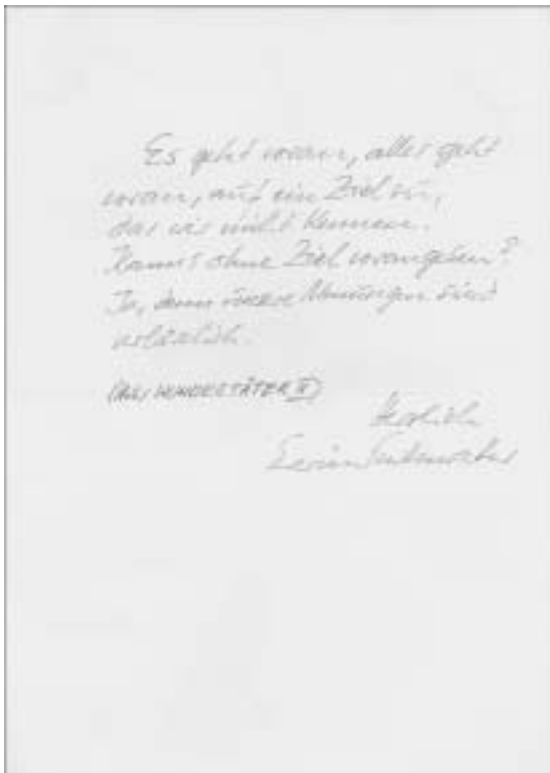 Es geht voran, alles geht
voran, auf ein Ziel zu,
das wir nicht kennen.
Kann's ohne Ziel vorangehen?
Ja, denn unsere Ahnungen sind
verlässlich.
(AUS WUNDERTÄTER II)
Herzlich
Erwin Strittmatter